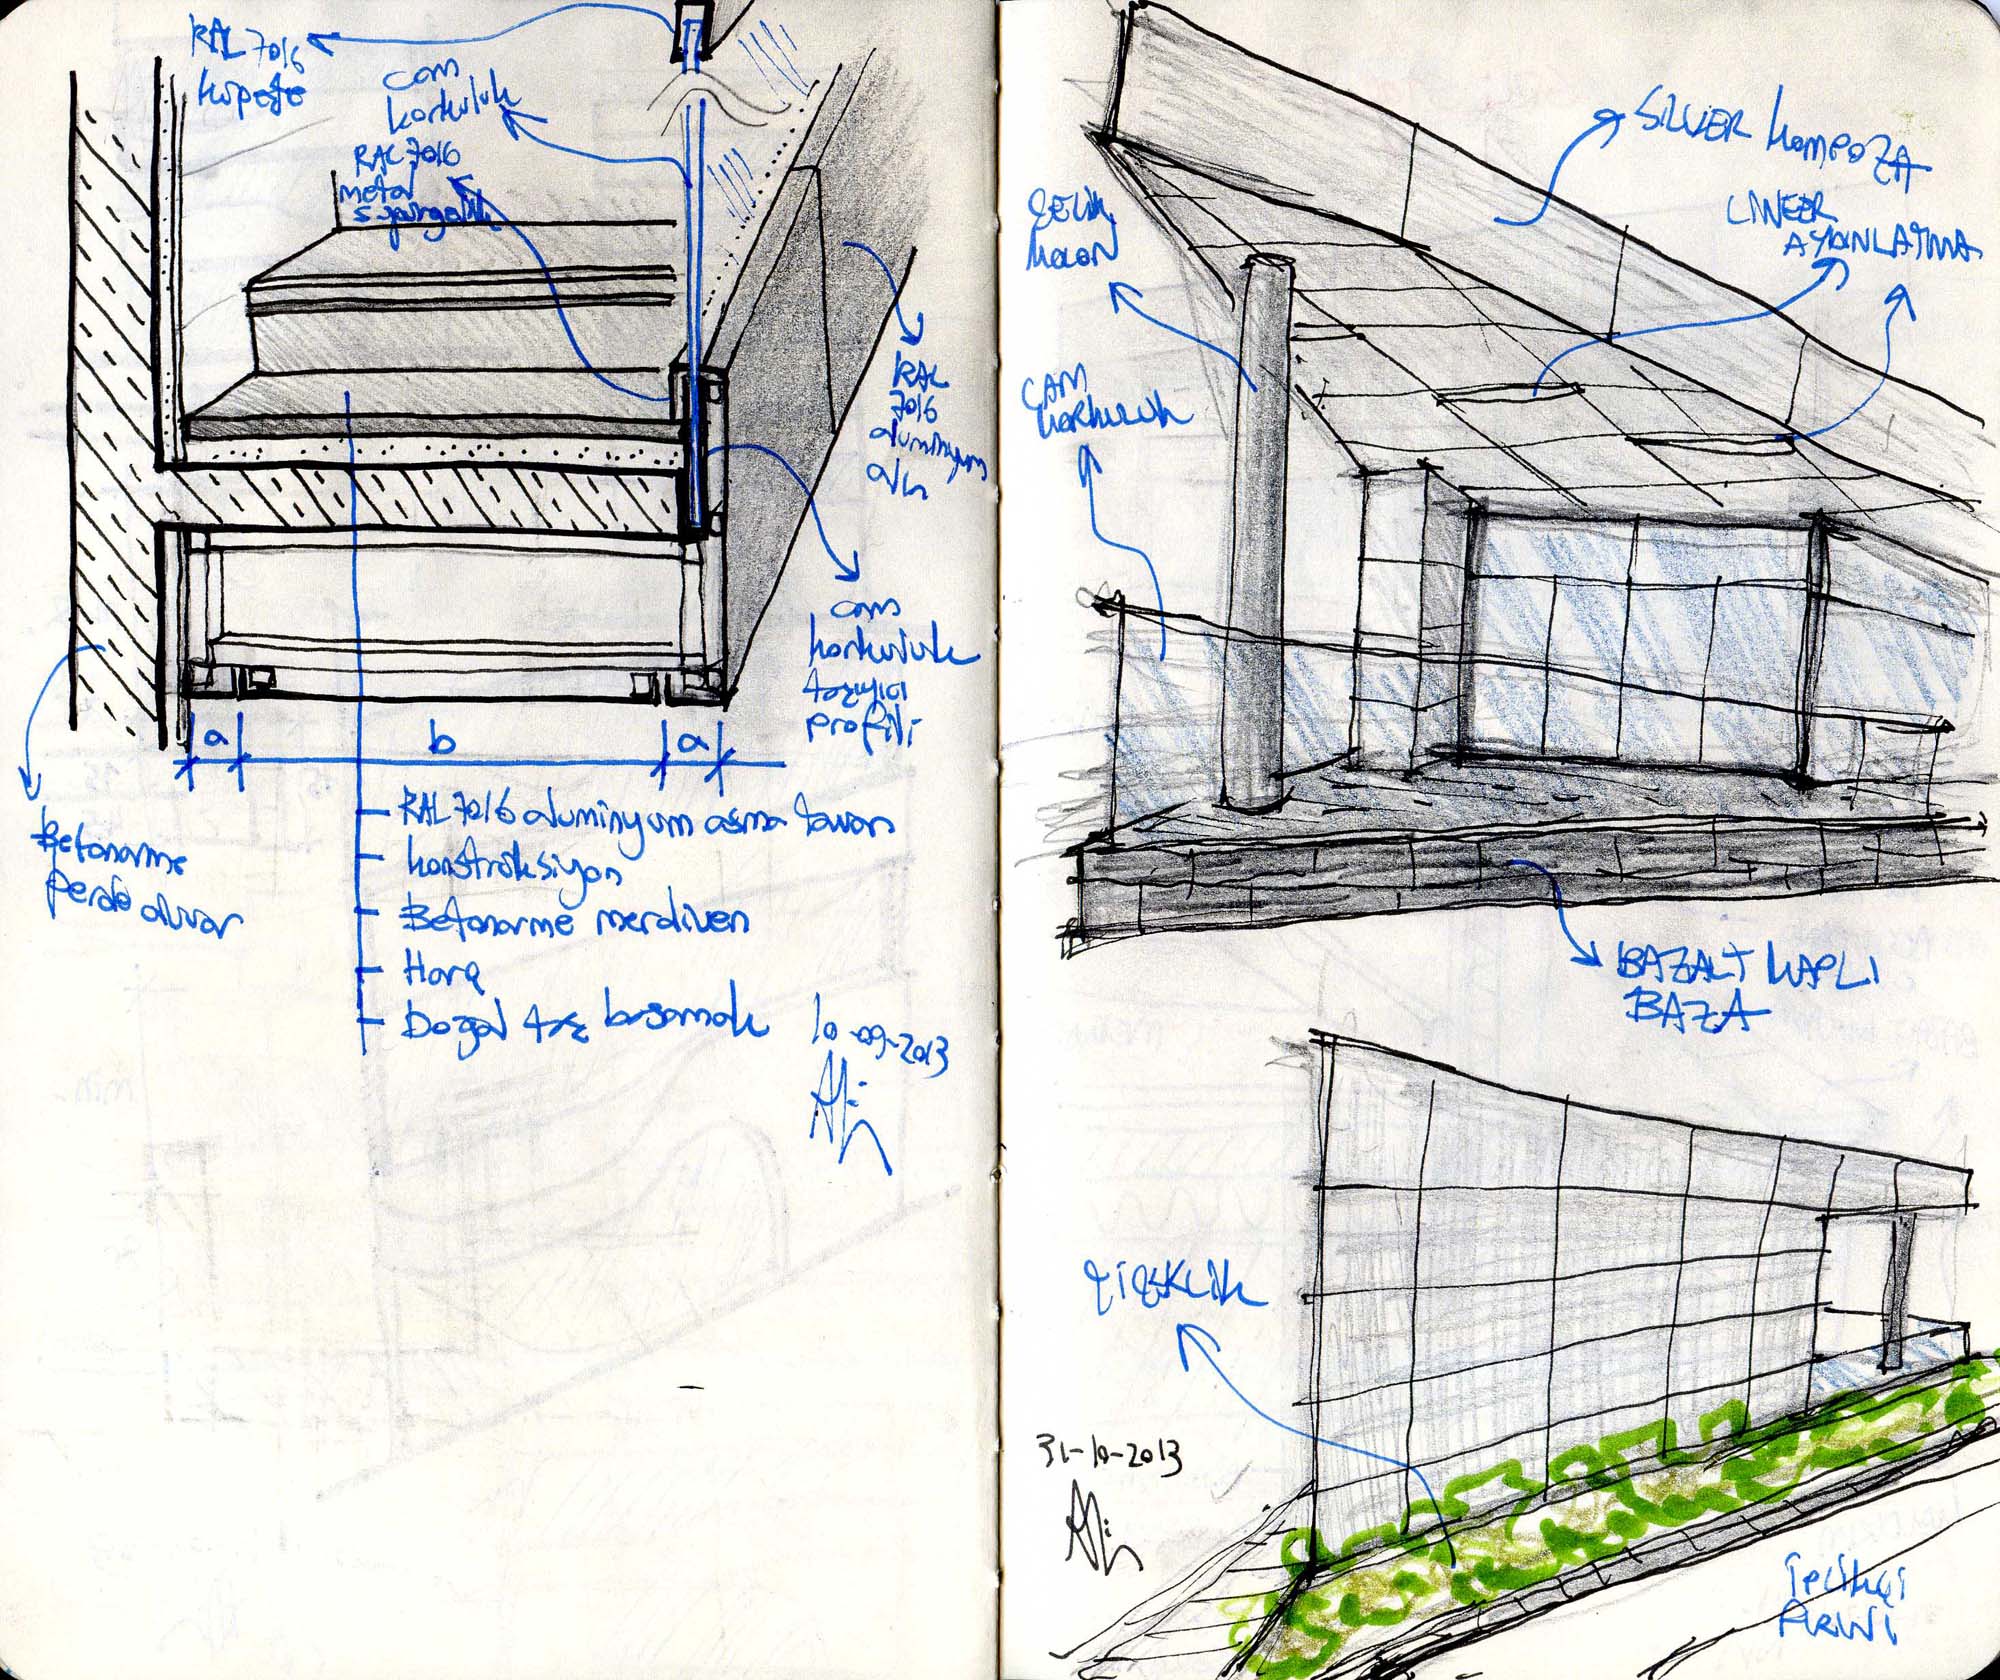 RAL 7016
küpeşte
cam
korkuluk
RAL 7016
metal
süpürgelik
RAL
7016
aluminyum
alın
cam
korkuluk
taşıyıcı
profili
a
b
a
Betonarme
perde duvar
RAL 7016 aluminyum asma tavan
konstrüksiyon
Betonarme merdiven
Harç
Doğal taş basamak
10-09-2013
SILVER KOMPOZİT
LINEER
AYDINLATMA
ÇELİK
KOLON
CAM
KORKULUK
BAZALT KAPLI
BAZA
ÇİÇEKLİK
31-10-2013
FIRINI